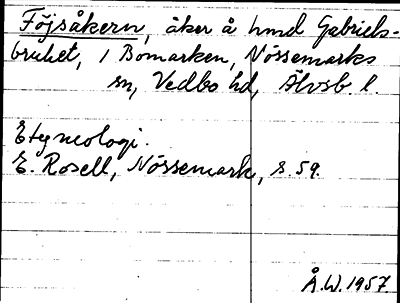 Föjsåkern, åker å hmd Gabriels-
bruket, 1 Bomarken, Nössemarks
sn, Vedbo hd, Älvsb. l.
Etymologi.
E. Rosell, Nössemark, s. 59.
Å.W. 1957.